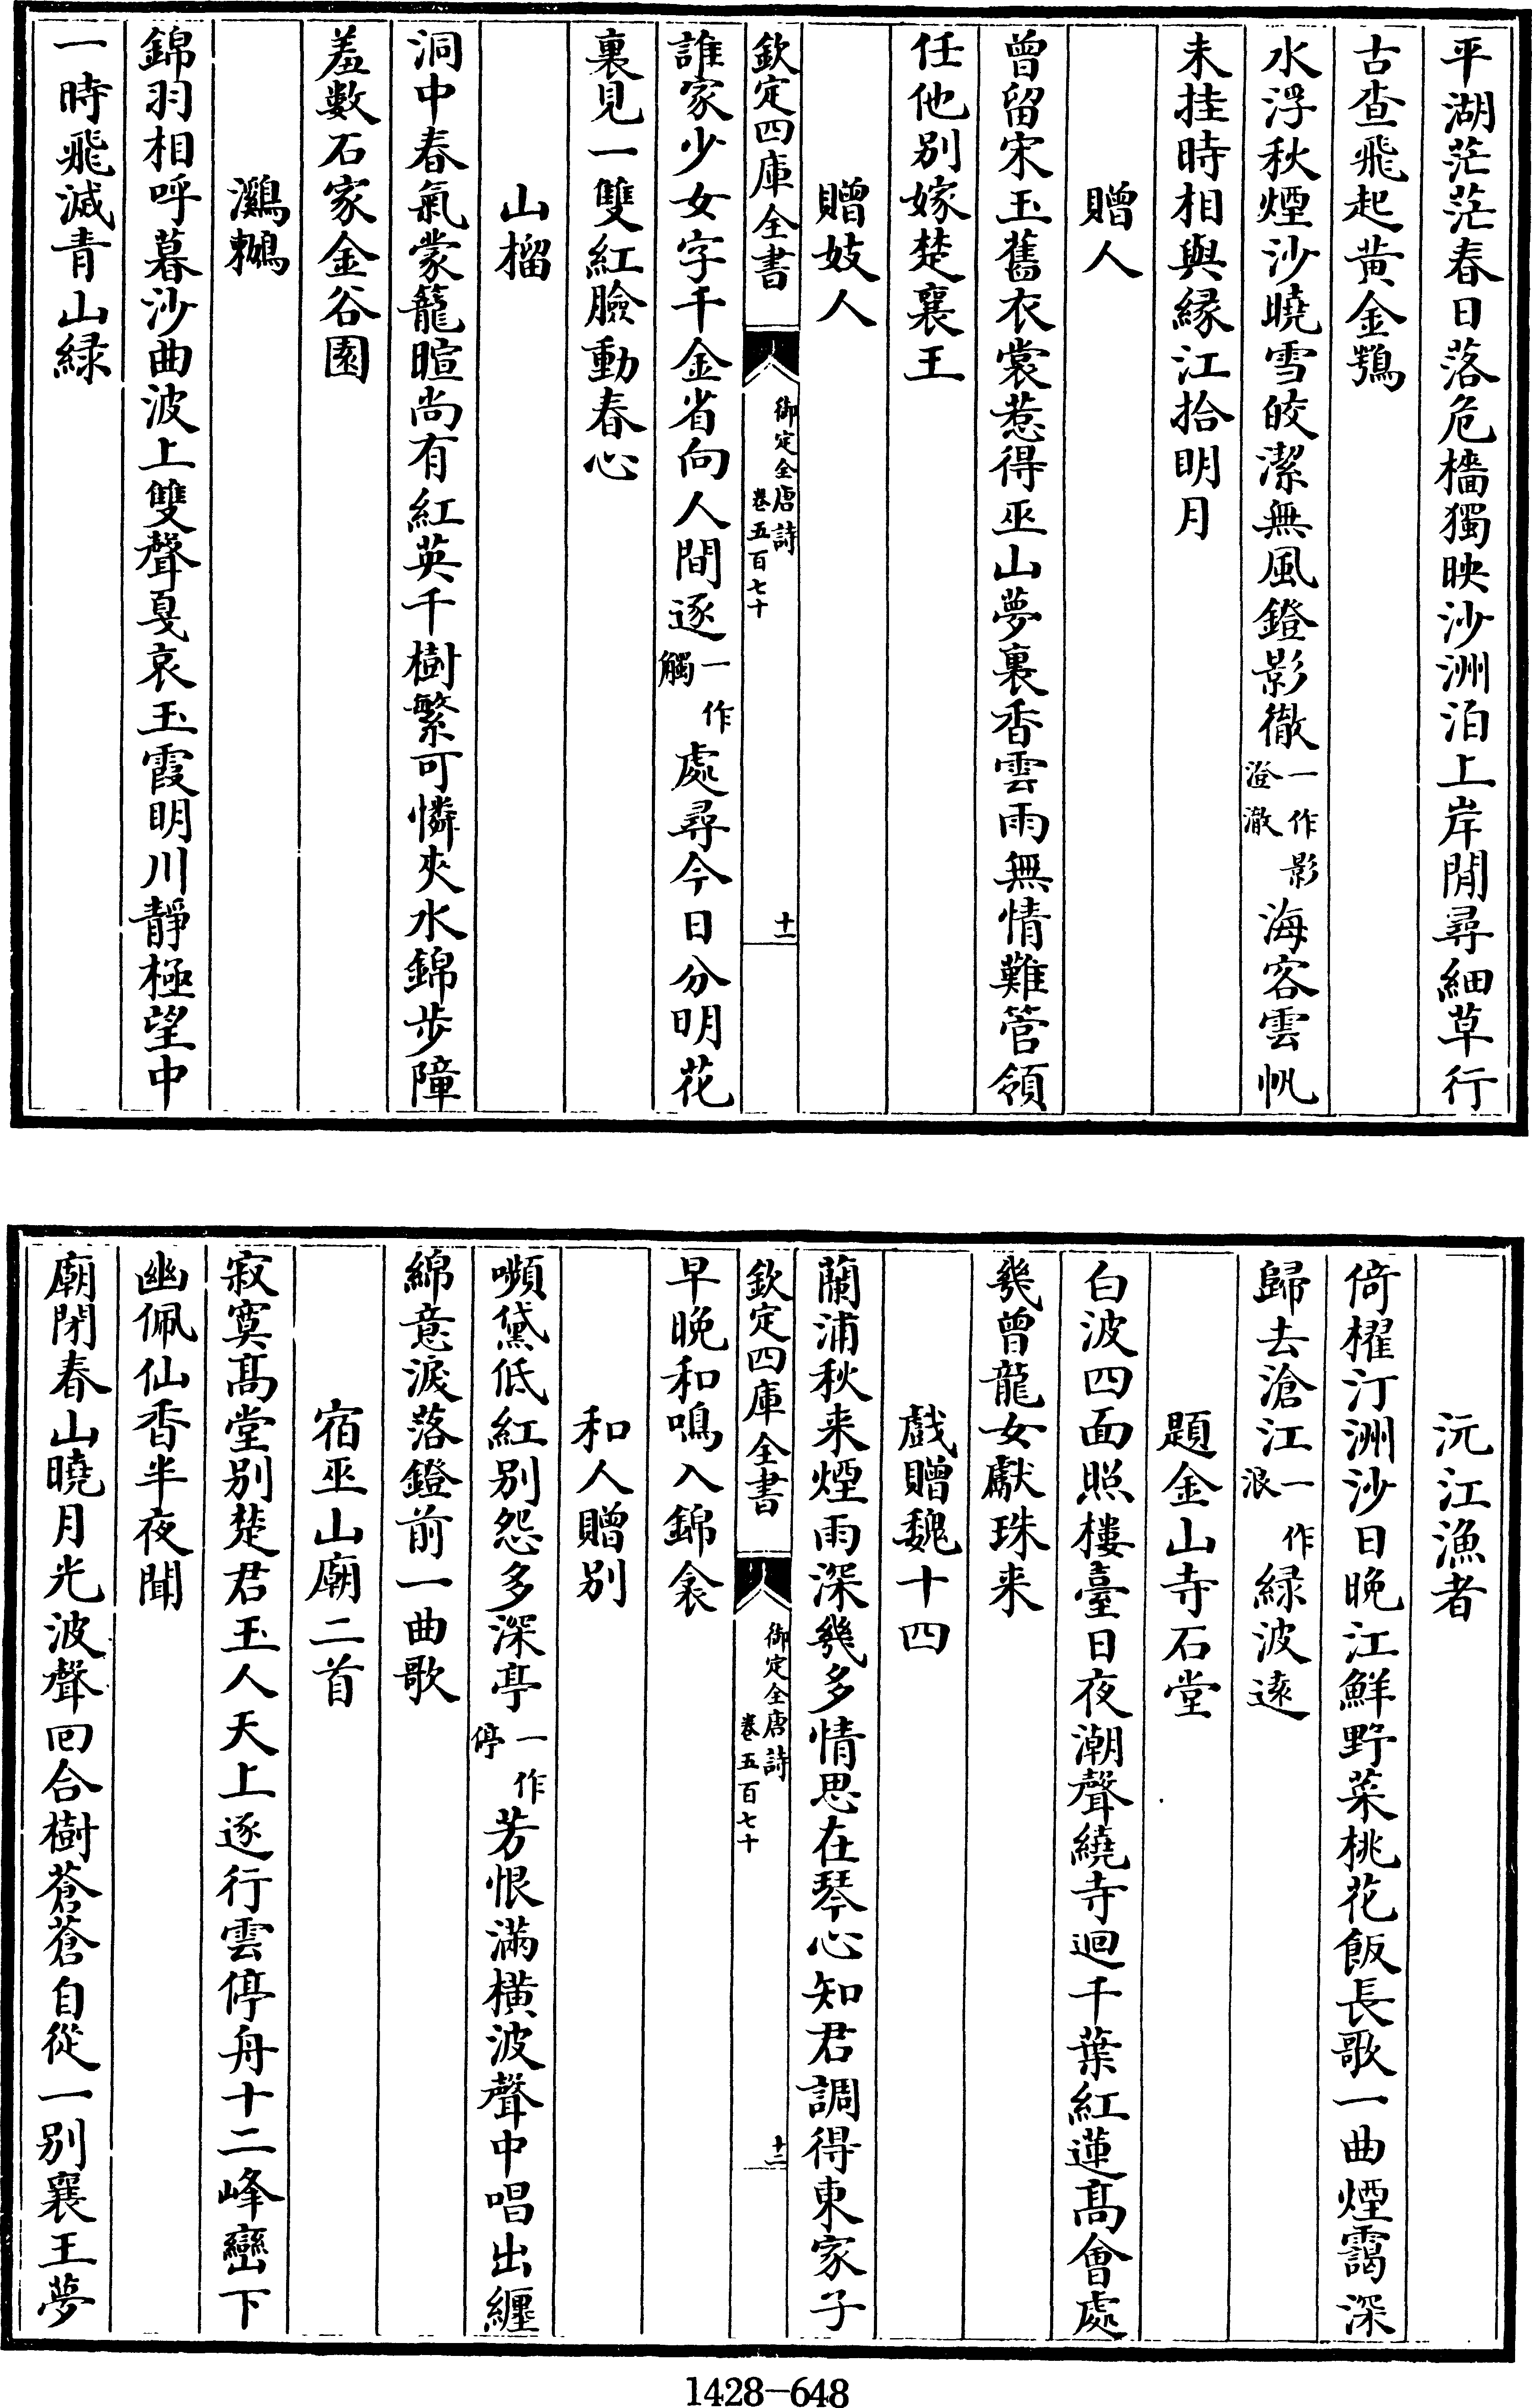 平湖茫茫春日落危檣獨映沙洲泊上岸閒尋細草行
古查飛起黄金鶚
水浮秋煙沙曉雪皎潔無風鐙影徹一作影澄澈海客雲帆
未挂時相與縁江拾明月
贈人
曾留宋玉舊衣裳惹得巫山夢裏香雲雨無情難管領
任他别嫁楚襄王
贈妓人
欽定四庫全書
御定全唐詩
卷五百七十
十一
誰家少女字千金省向人間逐一作觸處尋今日分明花
裏見一雙紅臉動春心
山榴
洞中春氣蒙籠暄尚有紅英千樹繁可憐夾水錦步障
羞數石家金谷園
鸂鶒
錦羽相呼暮沙曲波上雙聲戛哀玉霞明川靜極望中
一時飛滅青山緑
沅江漁者
倚櫂汀洲沙日晚江鮮野菜桃花飯長歌一曲煙靄深
歸去滄江一作浪緑波逺
題金山寺石堂
白波四面照樓臺日夜潮聲繞寺迴千葉紅蓮髙會處
幾曾龍女獻珠来
戲贈魏十四
蘭浦秋来煙雨深幾多情思在琴心知君調得東家子
欽定四庫全書
御定全唐詩
卷五百七十
十二
早晚和鳴入錦衾
和人贈别
嚬黛低紅别怨多深亭一作停芳恨滿横波聲中唱出纒
綿意淚落鐙前一曲歌
宿巫山廟二首
寂寞髙堂别楚君玉人天上逐行雲停舟十二峰巒下
幽佩仙香半夜聞
廟閉春山曉月光波聲囘合樹蒼蒼自從一别襄王夢
1428-648